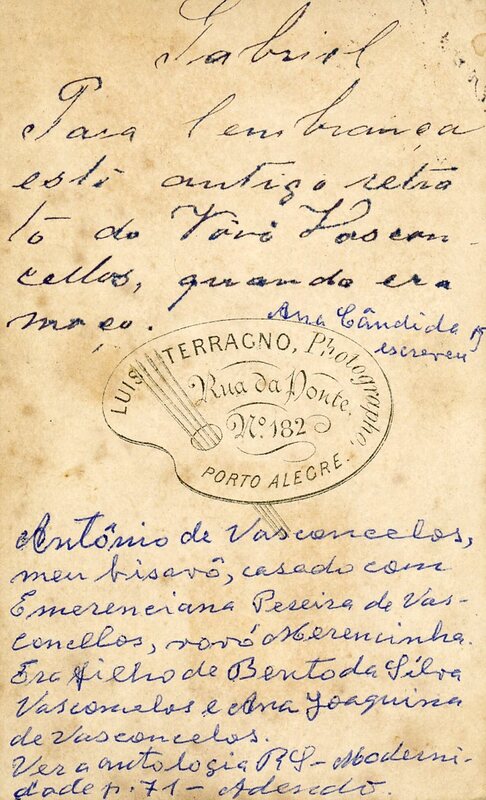 Gabriel
Para lembrança
este antigo retra
to do Vovô Vascon-
cellos, quando era
moço.
Ana Cândida
escreveu
LUIS TERRAGNO, Photographo,
Rua da Ponte,
Nº 182
PORTO ALEGRE.
Antônio de Vasconcelos,
meu bisavô, casado com
Emerenciana Pereira de Vas-
concellos, vovó Merencinha.
Era filho de Bento da Silva
Vasconcelos e Ana Joaquina
de Vasconcelos.
Ver a antologia RS - Moderni-
dade p. 71 - Adendo.